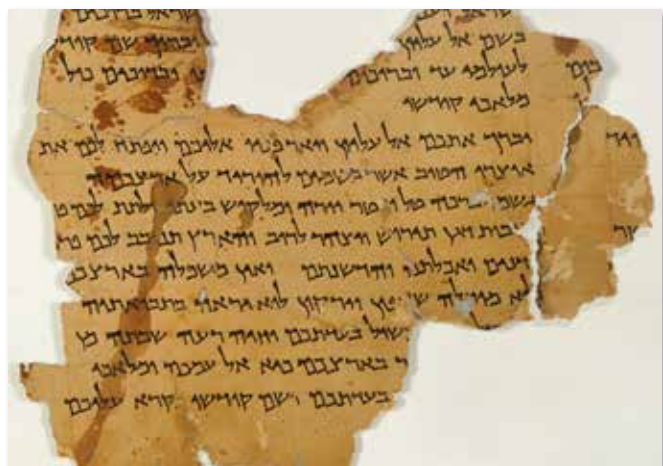 ישראל ברוכים
בשם אל עליון וברוך שם קודש
לעולמי עד וברוכים וברוכים כול
מלאכי קודשו
יברך אתכם אל עליון ויאר פניו אליכם ויפתח לכם את
אוצרו הטוב אשר בשמים להוריד על ארצכמה
גשמי ברכה טל ומטר יורה ומלקוש בעתו ולתת לכם
תירוש ויצהר לרוב והארץ תנובב לכם
ואכלתם והדשנתם ואין משכלה בארצכם
שדפון וירקון לוא יראה בתבואתיה
בעדתכם וחיה רעה שבתה מן
בארצכם כיא אל עמכם ומלאכי
בעדתכם ושם קודשו נקרא עליכם